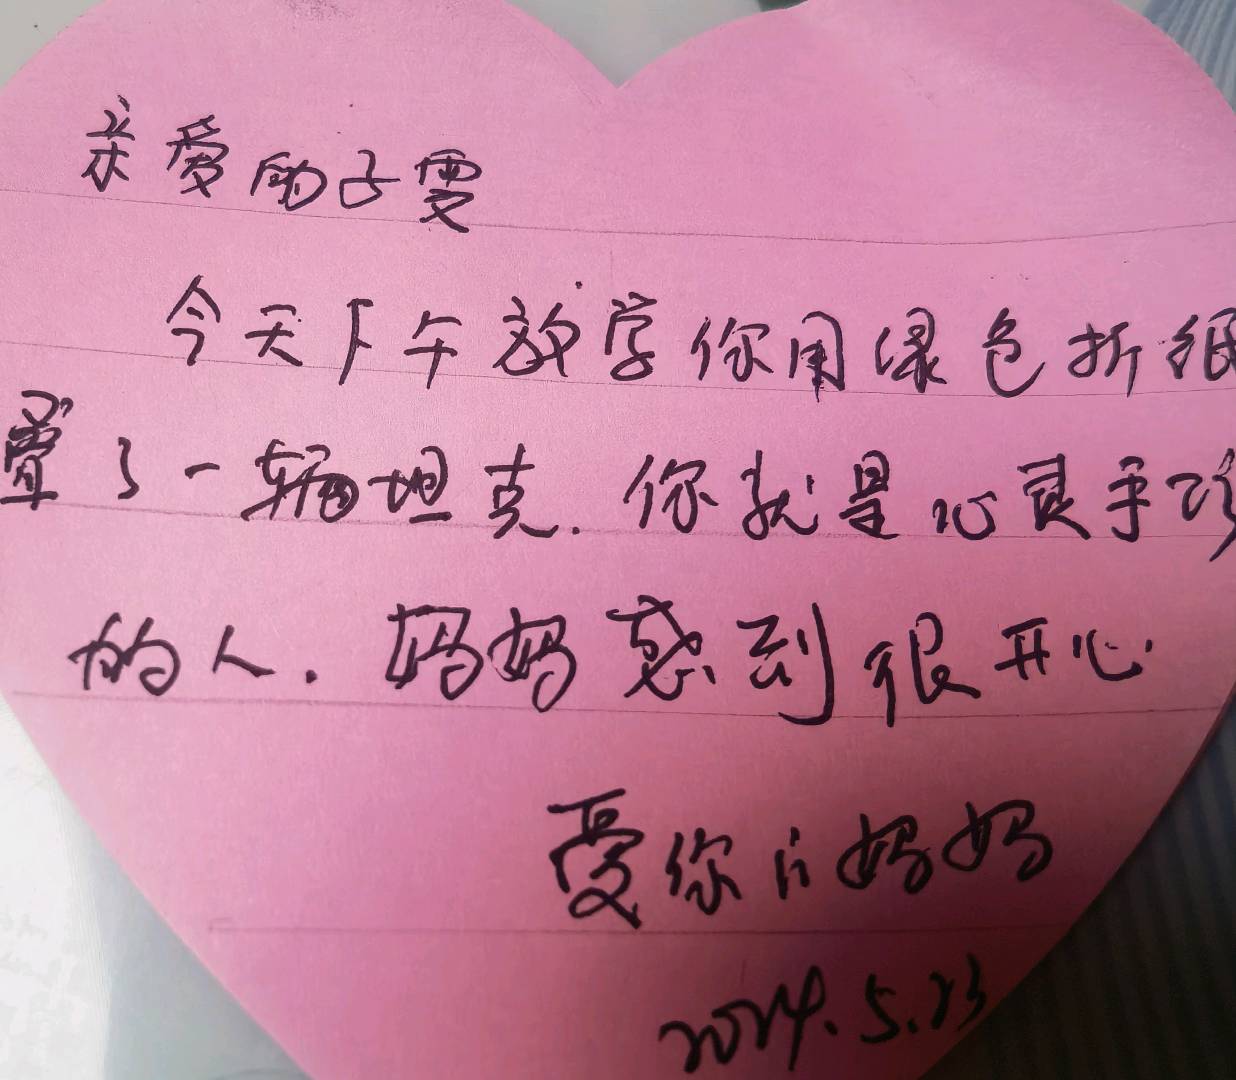 亲爱的子雯
今天下午放学你用绿色折纸
叠了一辆坦克.你就是心灵手巧
的人.妈妈感到很开心
爱你的妈妈
2024.5.23